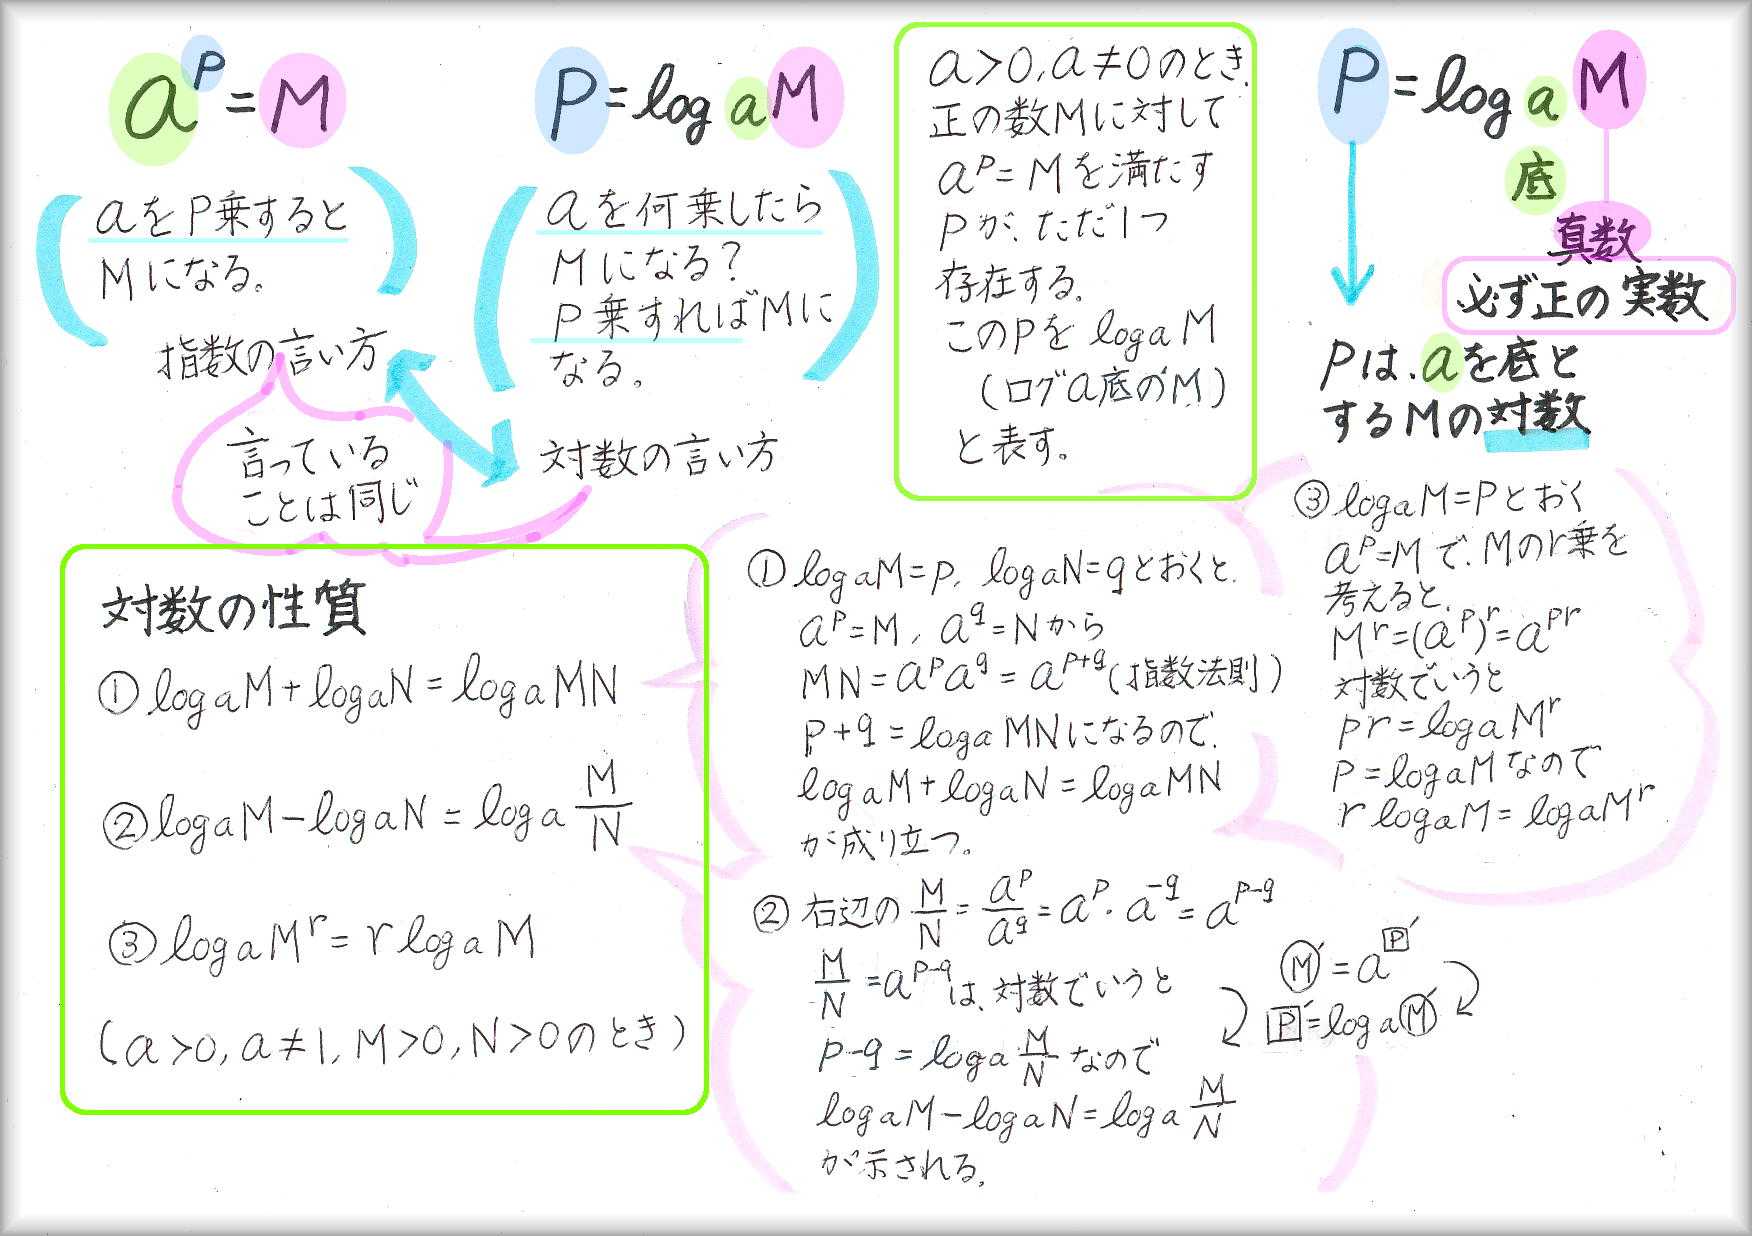 a^p = M
(aをP乗すると
Mになる。)
指数の言い方
言っている
ことは同じ
P = log a M
(aを何乗したら
Mになる?
P乗すればMに
なる。)
対数の言い方
a>0, a≠0のとき、
正の数Mに対して
a^p = Mを満たす
Pが、ただ1つ
存在する。
このPを log a M
(ログa底のM)
と表す。
P = log a M
底
真数
必ず正の実数
Pは、aを底と
するMの対数
対数の性質
① log a M + log a N = log a MN
② log a M − log a N = log a M/N
③ log a M^r = r log a M
(a>0, a≠1, M>0, N>0のとき)
① log a M = p, log a N = q とおくと、
a^p = M, a^q = N から
MN = a^p a^q = a^(p+q) (指数法則)
p+q = log a MN になるので、
log a M + log a N = log a MN
が成り立つ。
② 右辺の M/N = a^p/a^q = a^p・a^(-q) = a^(p-q)
M/N = a^(p-q) は、対数でいうと
p-q = log a M/N なので
log a M − log a N = log a M/N
が示される。
Ⓜ′ = a^🄿′
🄿′ = log a Ⓜ′
③ log a M = P とおく
a^p = M で、Mのr乗を
考えると、
M^r = (a^p)^r = a^pr
対数でいうと
pr = log a M^r
P = log a M なので
r log a M = log a M^r